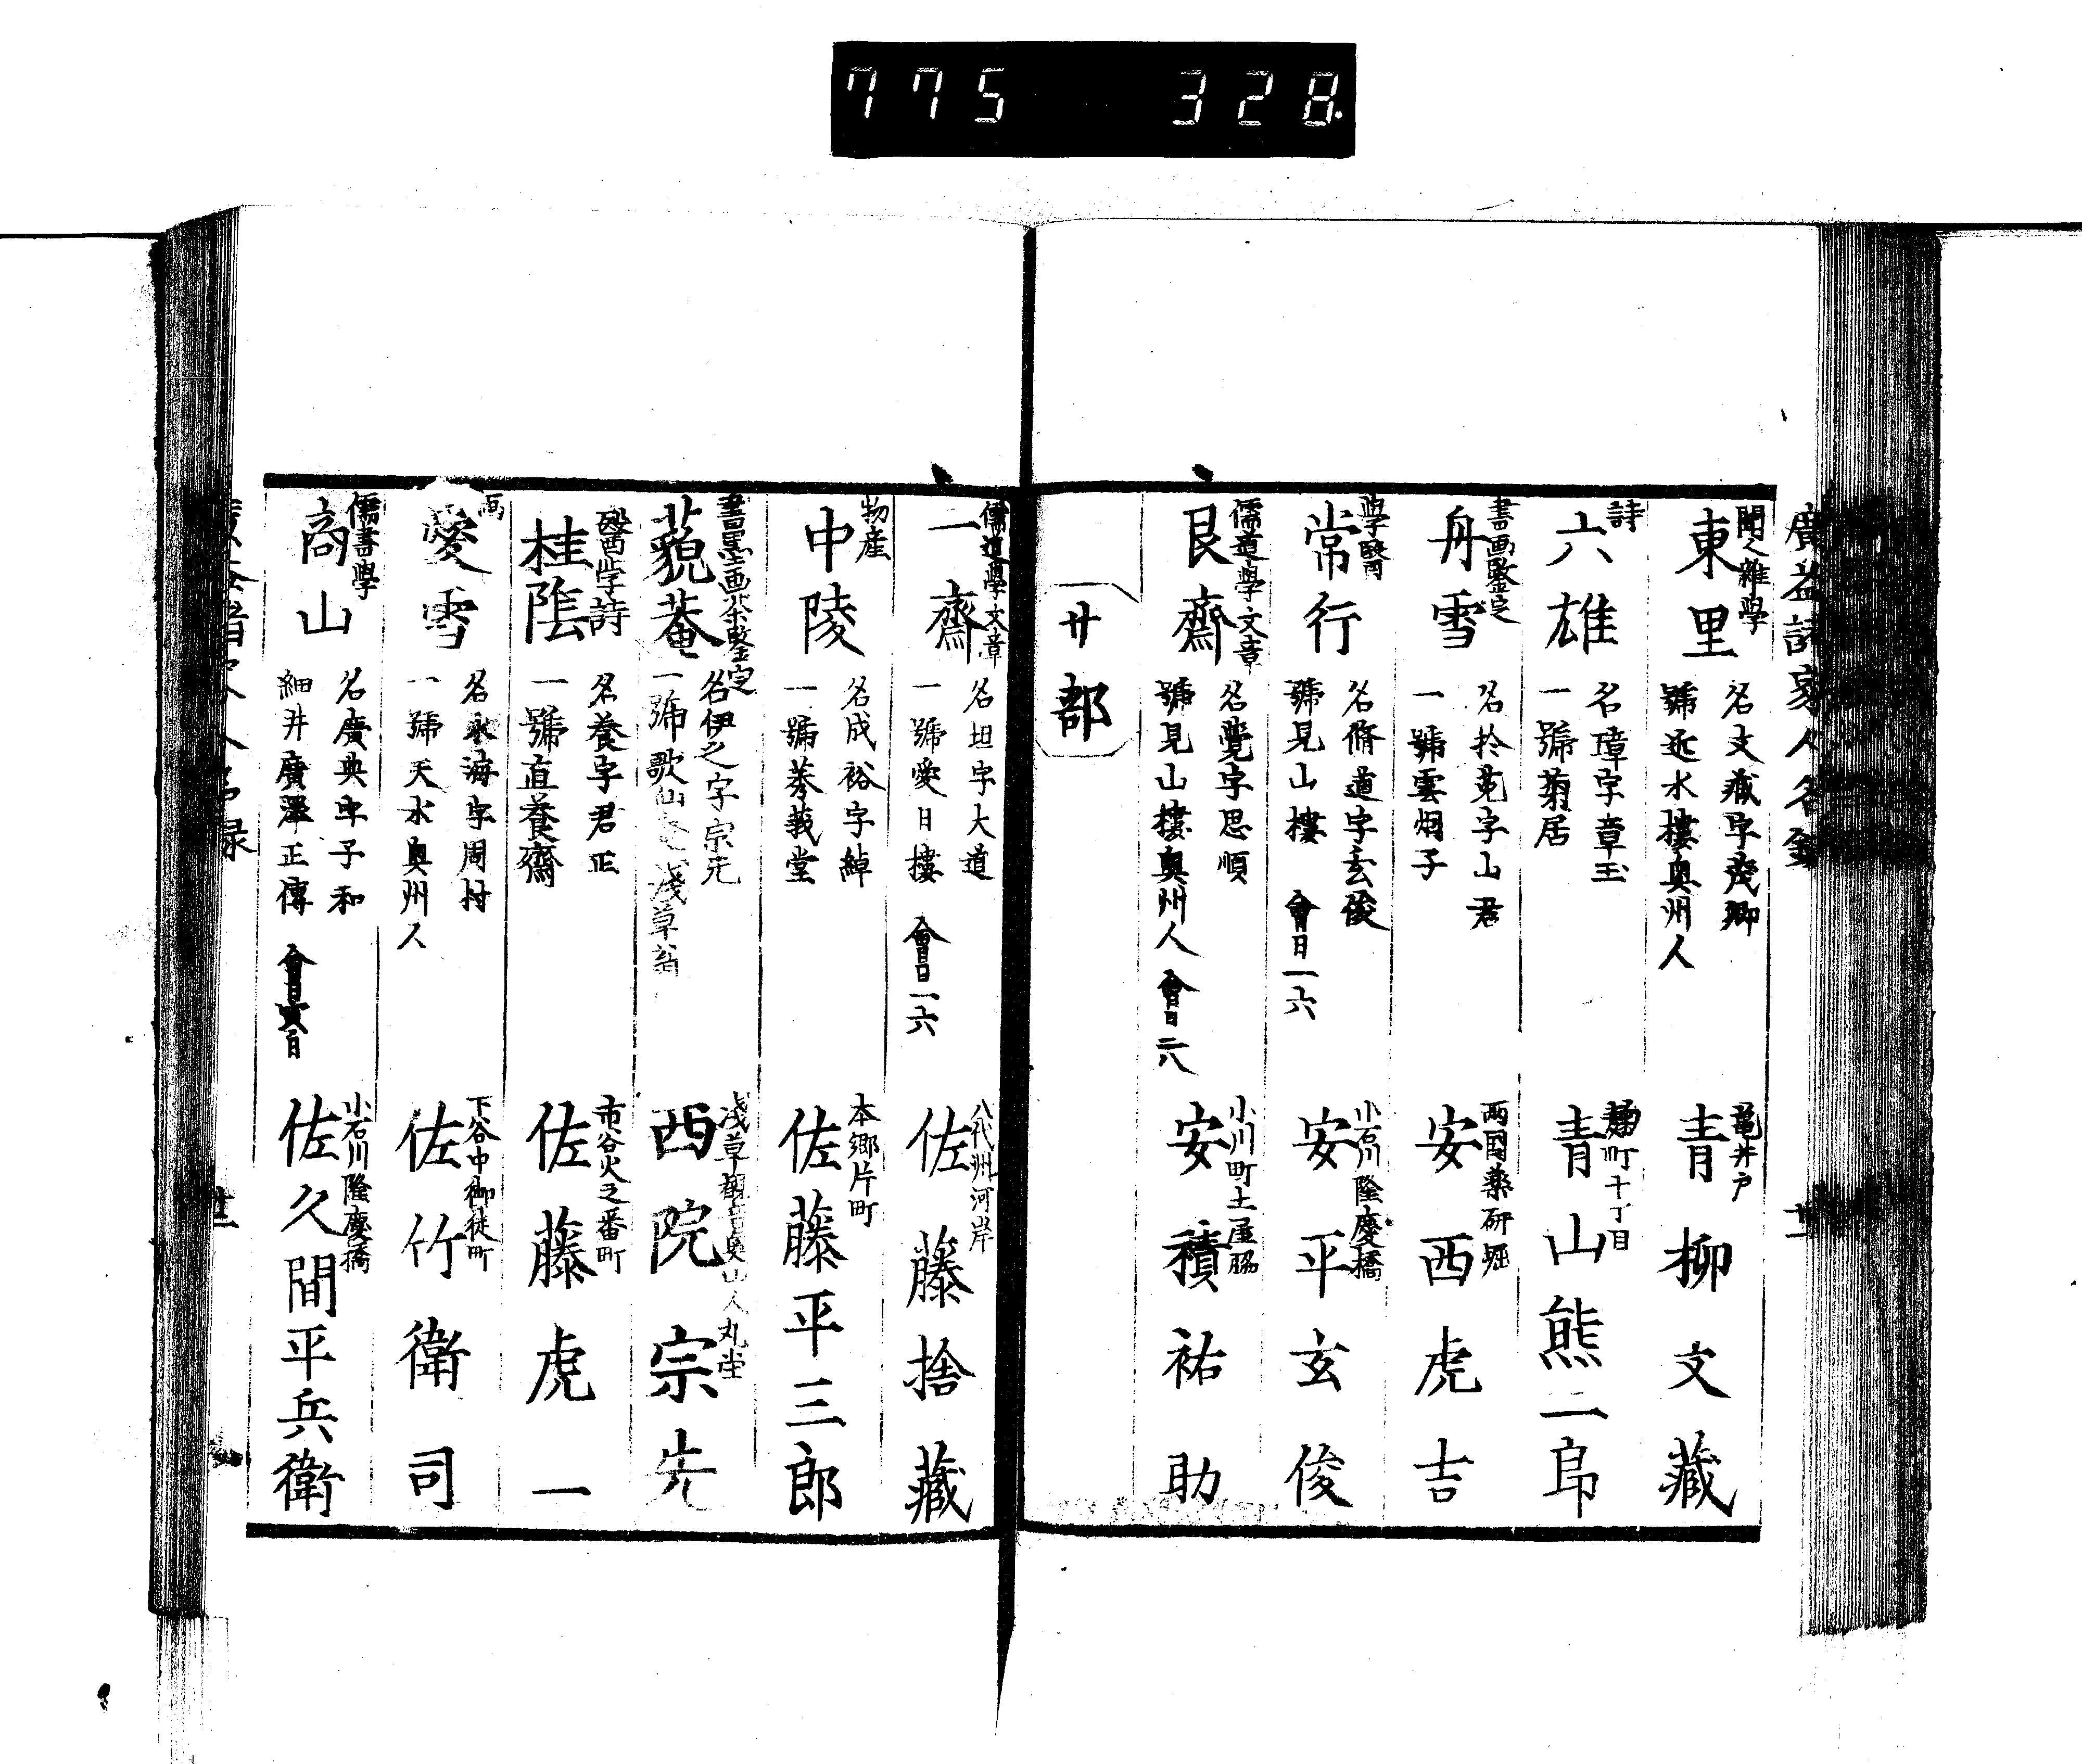 775 328
廣益諸家人名録
聞人雜學
東里
名文藏字茂卿
號近水樓奥州人
亀井戸
青柳文藏
詩
六雄
名璋字章玉
一號菊居
麹町十丁目
青山熊二郎
書画鑒定
舟雪
名於菟字山君
一號雲烟子
両国薬研堀
安西虎吉
學醫
常行
名脩道字玄俊
號見山樓 會日一六
小石川隆慶橋
安平玄俊
儒道學文章
艮齋
名覺字思順
號見山樓奥州人 會日二八
小川町土屋脇
安積祐助
サ部
廿一
儒道學文章
一齋
名坦字大道
一號愛日樓 會日一六
八代洲河岸
佐藤捨藏
物産
中陵
名成裕字綽
一號菶莪堂
本郷片町
佐藤平三郎
書墨画茶鑒定
藐菴
名伊之字宗先
一號歌仙 淺草翁
淺草観音奥山人丸堂
西院宗先
醫学詩
桂陰
名養字君正
一號直養齋
市谷火之番町
佐藤虎一
画
愛雪
名永海字周村
一號天水奥州人
下谷中御徒町
佐竹衛司
儒書學
商山
名廣典字子和
細井廣澤正傳 會日
小石川隆慶橋
佐久間平兵衛